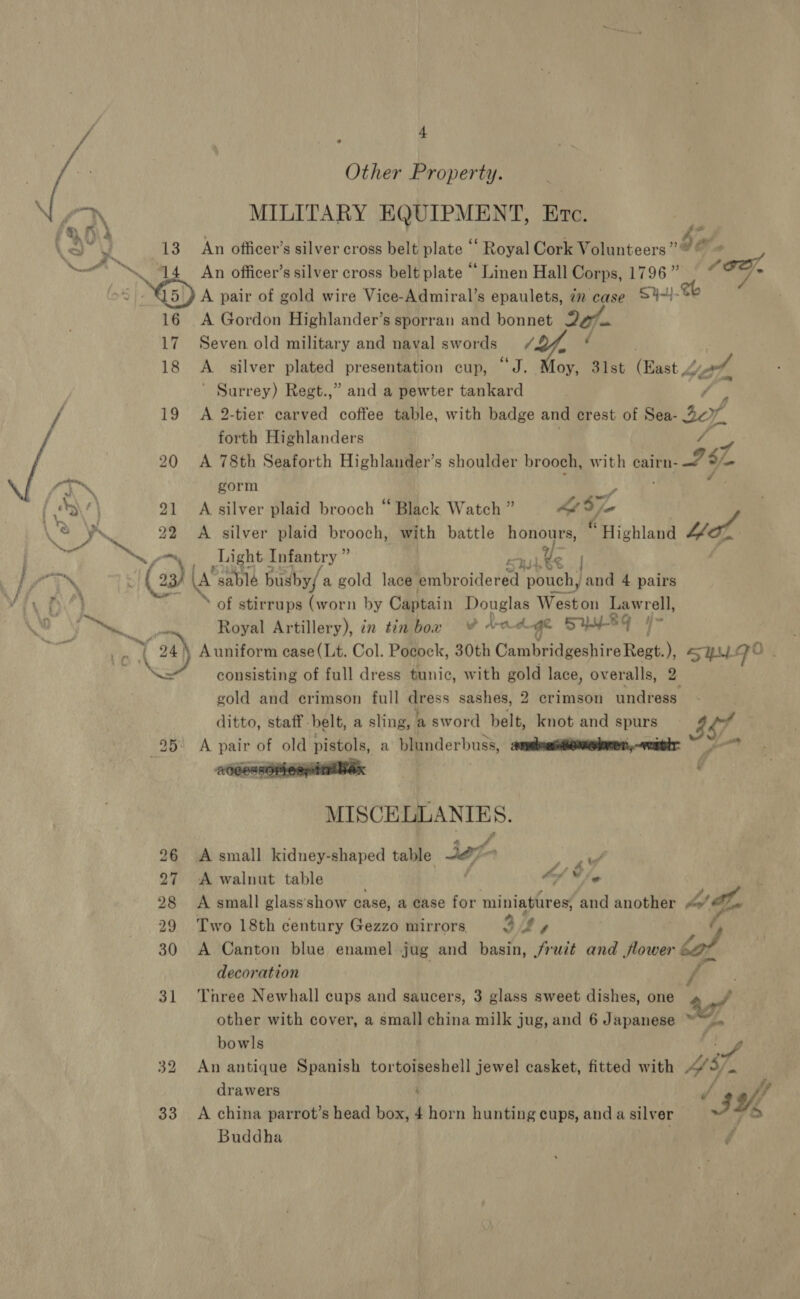 4
Other Property.
MILITARY EQUIPMENT, Etc.
13 An officer's silver cross belt plate “Royal Cork Volunteers”
14 An officer's silver cross belt plate “Linen Hall Corps, 1796”
15 A pair of gold wire Vice-Admiral's epaulets, in case
16 A Gordon Highlander's sporran and bonnet
17 Seven old military and naval swords
18 A silver plated presentation cup, “J. Moy, 31st (East
Surrey) Regt.,” and a pewter tankard
19 A 2-tier carved coffee table, with badge and crest of Sea-
forth Highlanders
20 A 78th Seaforth Highlander's shoulder brooch, with cairn-
gorm
21 A silver plaid brooch “Black Watch”
22 A silver plaid brooch, with battle honours, “Highland
Light Infantry”
23 A sable busby, a gold lace embroidered pouch, and 4 pairs
of stirrups (worn by Captain Douglas Weston Lawrell,
Royal Artillery), in tin box & badge 5444-89
24 A uniform case (Lt. Col. Pocock, 30th Cambridgeshire Regt.),
consisting of full dress tunic, with gold lace, overalls, 2
gold and crimson full dress sashes, 2 crimson undress
ditto, staff belt, a sling, a sword belt, knot and spurs
25 A pair of old pistols, a blunderbuss,
MISCELLANIES.
26 A small kidney-shaped table
27 A walnut table
28 A small glass show case, a case for miniatures, and another
29 Two 18th century Gezzo mirrors
30 A Canton blue enamel jug and basin, fruit and flower
decoration
31 Three Newhall cups and saucers, 3 glass sweet dishes, one
other with cover, a small china milk jug, and 6 Japanese
bowls
32 An antique Spanish tortoiseshell jewel casket, fitted with
drawers
33 A china parrot's head box, 4 horn hunting cups, and a silver
Buddha